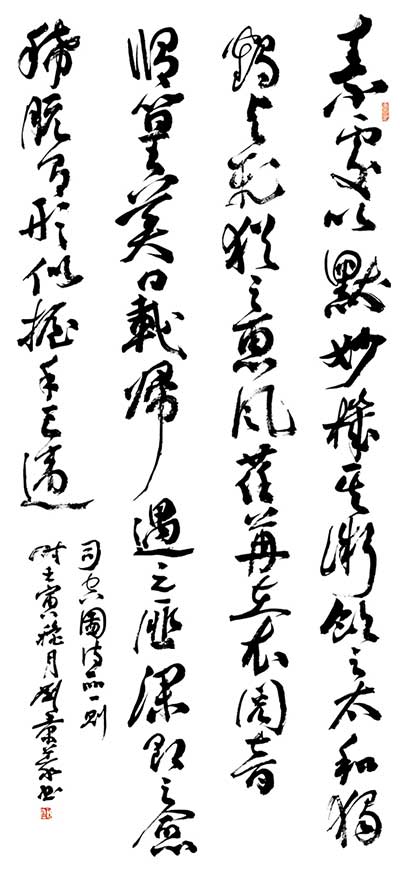 素處以默妙機其微飲之太和獨
鶴與飛猶之惠風荏苒在衣閱音
脩篁美曰載歸遇之匪深即之愈
稀脫有形似握手已違
司空圖詩品一則
時壬寅月劉書